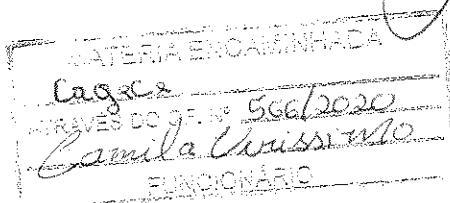 MATERIA ENCAMINHADA
Cagece
ATRAVÉS DO OF. Nº 566/2020
Camila Verissimo
FUNCIONÁRIO